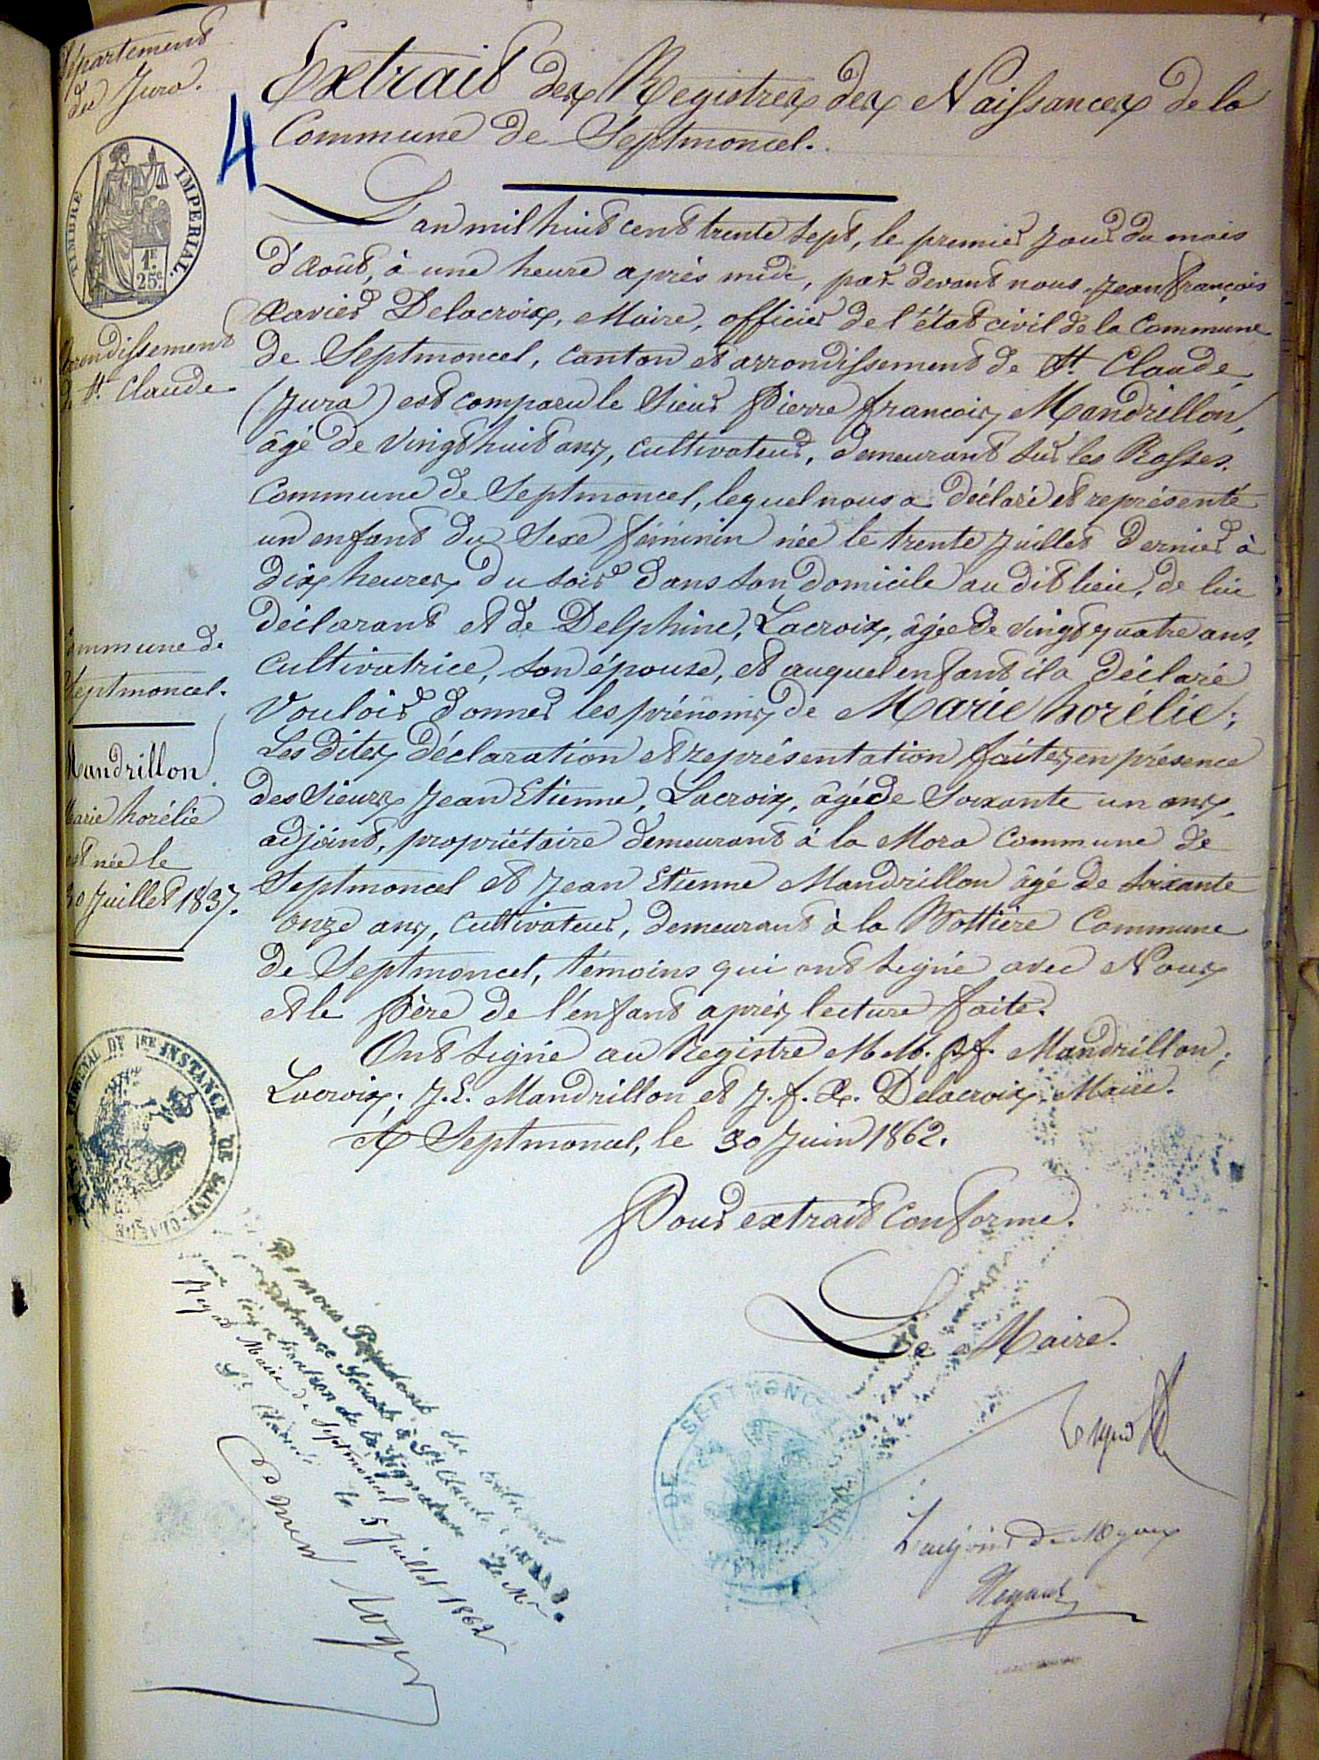 Département
du Jura.
4
Extrait des Registres des Naissances de la
Commune de Septmoncel.
TIMBRE IMPERIAL.
1F
25c
Arrondissement
de St. Claude
Commune de
Septmoncel.
Mandrillon
Marie horélie
est née le
30 Juillet 1837.
L'an mil huit cent trente sept, le premier jour du mois
d'Août, à une heure après midi, par devant nous Jean françois
Xavier Delacroix, Maire, officier de l'état civil de la Commune
de Septmoncel, canton et arrondissement de St. Claude,
(Jura) est comparu le Sieur Pierre françois Mandrillon,
âgé de vingt huit ans, cultivateur, demeurant sur les Rosses.
Commune de Septmoncel, lequel nous a déclaré et représenté
un enfant du Sexe féminin née le trente Juillet dernier à
dix heures du soir dans son domicile au dit lieu, de lui
déclarant et de Delphine, Lacroix, âgée de vingt quatre ans,
Cultivatrice, son épouse, et auquel enfant il a déclaré
Vouloir donner les prénoms de Marie horélie;
Les dites déclaration et représentation faites en présence
des Sieurs Jean Etienne, Lacroix, âgé de Soixante un ans,
adjoint, propriétaire demeurant à la Mora Commune de
Septmoncel et Jean Etienne Mandrillon âgé de soixante
onze ans, cultivateur, demeurant à la Bottière Commune
de Septmoncel, témoins qui ont signé avec Nous
et le Père de l'enfant après lecture faite.
Ont signé au Registre M.M. P.f. Mandrillon;
Lacroix; J.E. Mandrillon et J. f. X. Delacroix Maire.
A Septmoncel, le 30 Juin 1862.
Pour extrait Conforme.
Le Maire.
TRIBUNAL DE 1ERE INSTANCE DE SAINT-CLAUDE
DE SEPTMONCEL
Par nous Président du tribunal
instance séant à St Claude
pour légalisation de la Signature de Mr
Regad Maire de Septmoncel
St Claude le 5 Juillet 1862
L'adjoint de
Regad